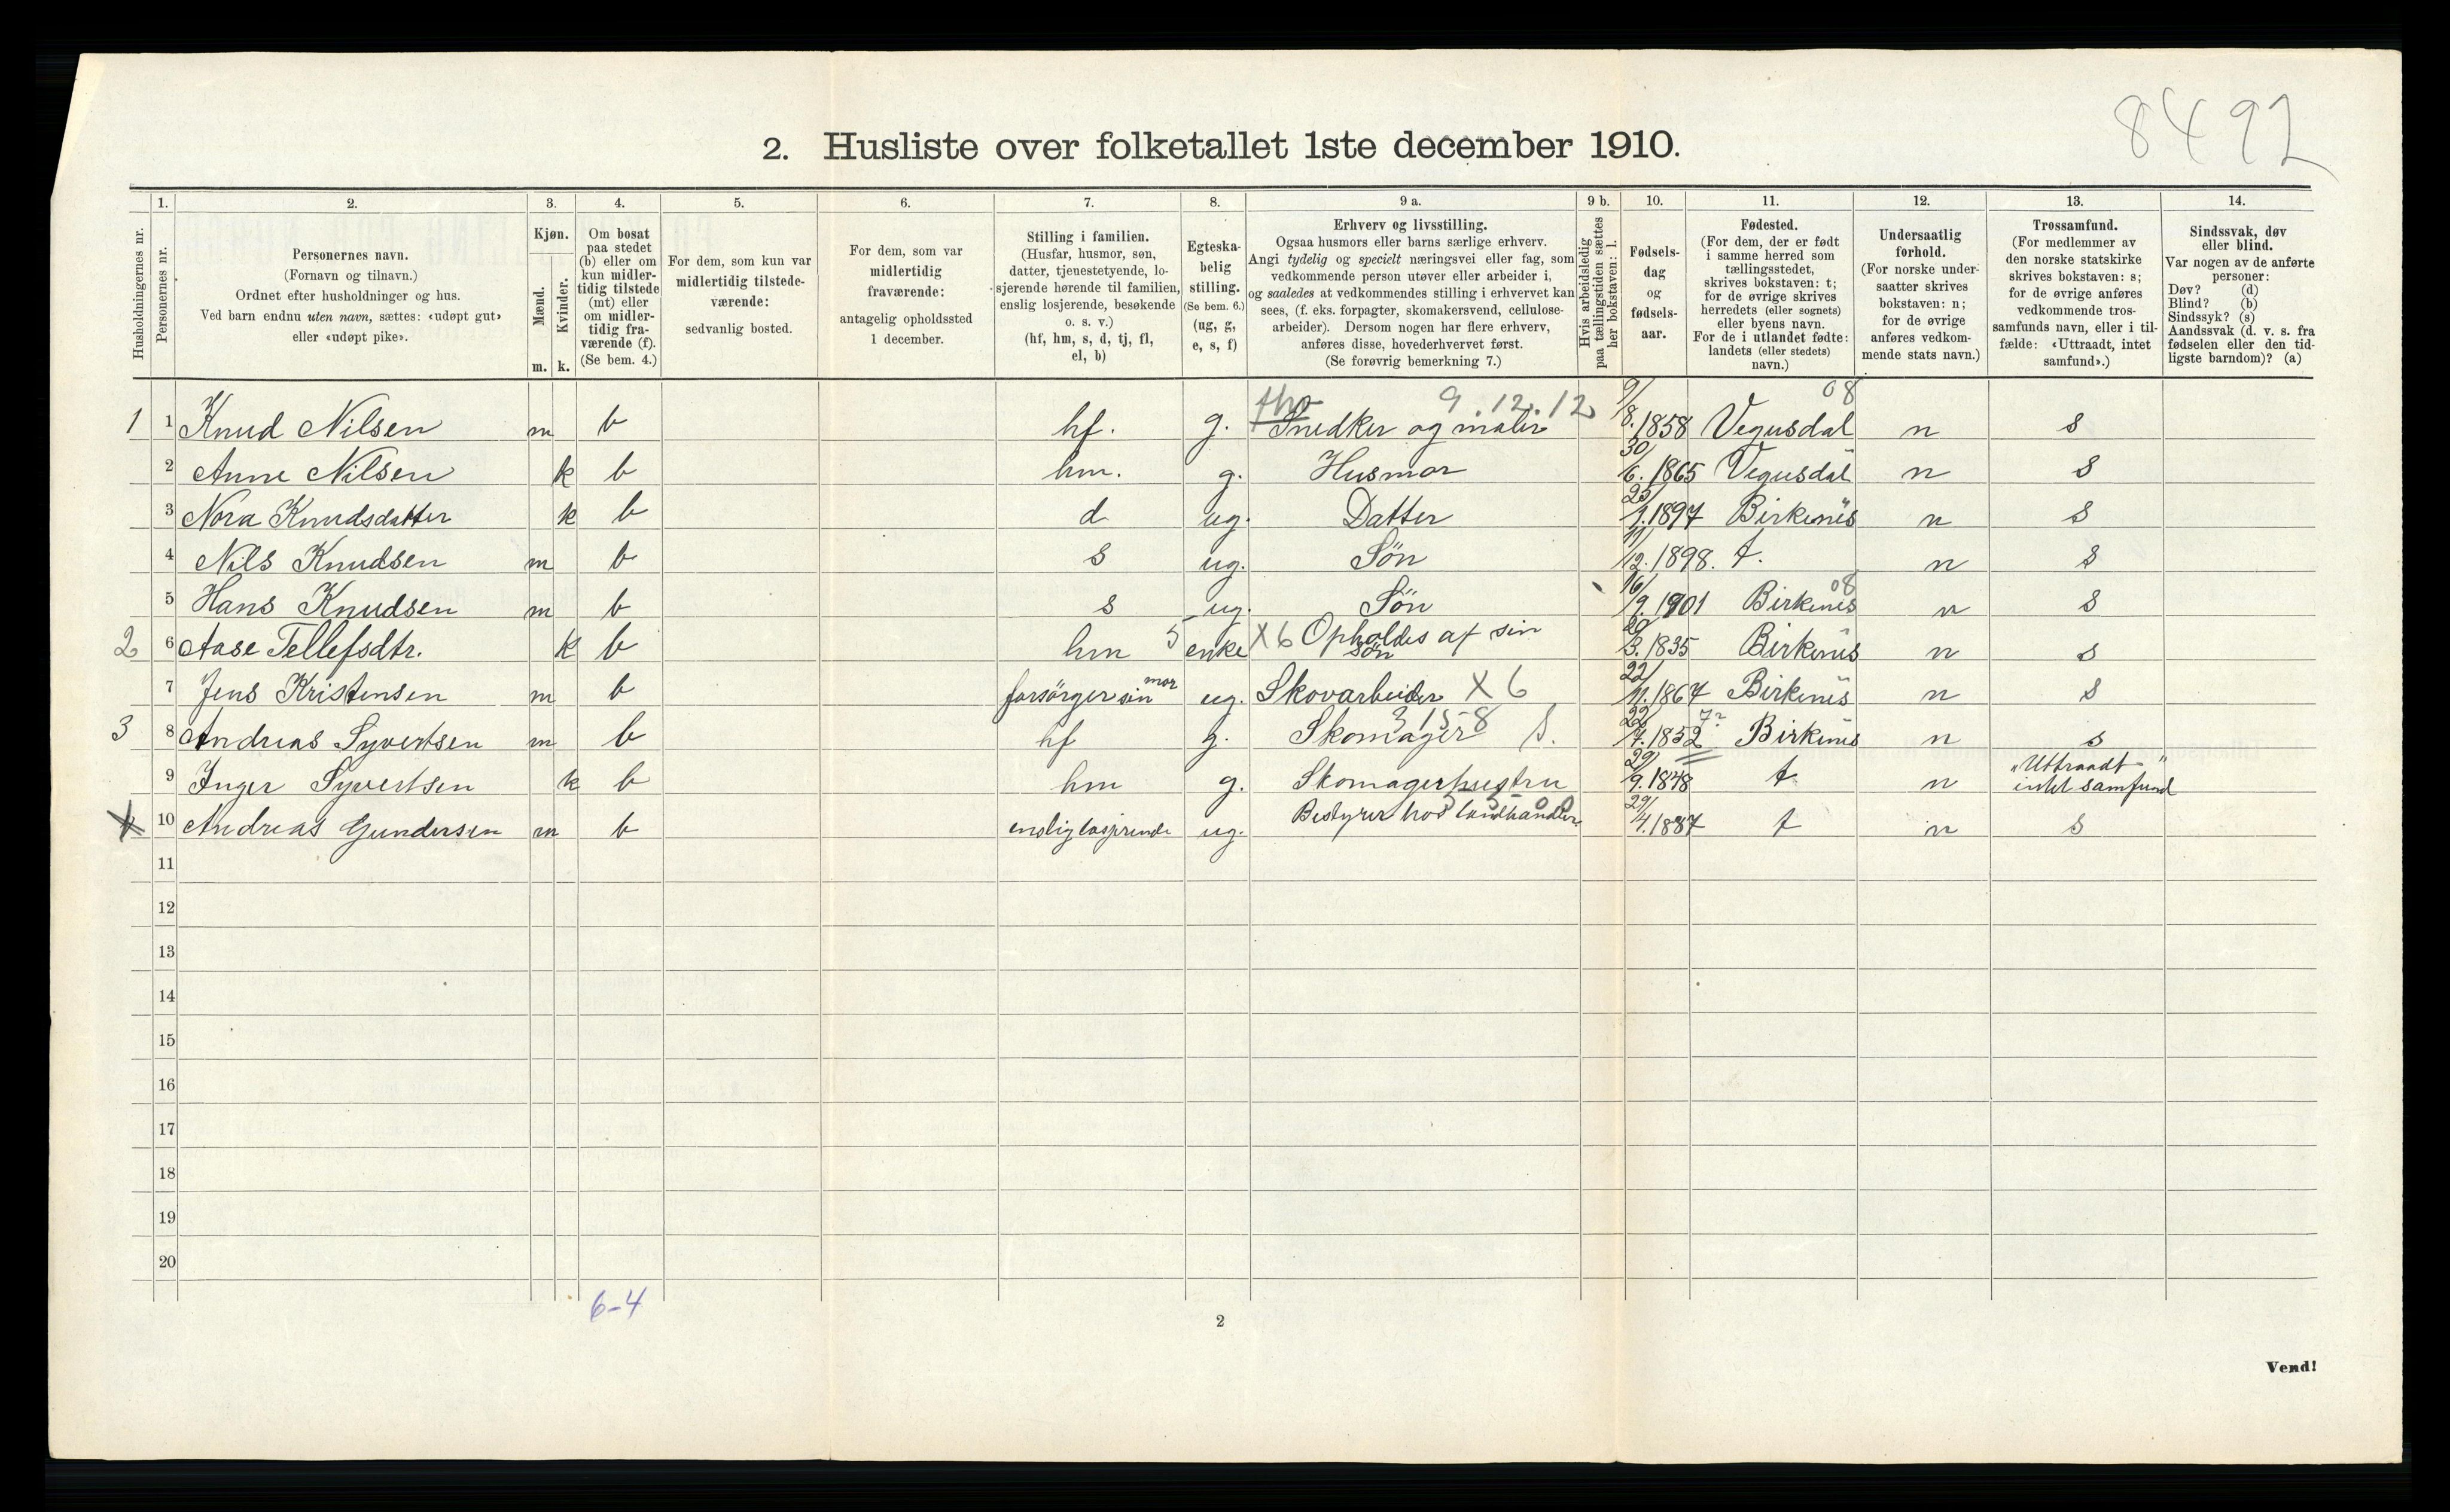 8492
2. Husliste over folketallet 1ste december 1910.
1. 2. 3. 4. 5. 6. 7. 8. 9 a. 9 b. 10. 11. 12. 13. 14.
Husholdningernes nr.
Personernes nr.
Personernes navn.
(Fornavn og tilnavn.)
Ordnet efter husholdninger og hus.
Ved barn endnu uten navn, sættes: «udøpt gut»
eller «udøpt pike».
Kjøn.
Mænd.
Kvinder.
m. k.
Om bosat
paa stedet
(b) eller om
kun midler-
tidig tilstede
(mt) eller
om midler-
tidig fra-
værende (f).
(Se bem. 4.)
For dem, som kun var
midlertidig tilstede-
værende:
sedvanlig bosted.
For dem, som var
midlertidig
fraværende:
antagelig opholdssted
1 december.
Stilling i familien.
(Husfar, husmor, søn,
datter, tjenestetyende, lo-
sjerende hørende til familien,
enslig losjerende, besøkende
o. s. v.)
(hf, hm, s, d, tj, fl,
el, b)
Egteska-
belig
stilling.
(Se bem. 6.)
(ug, g,
e, s, f)
Erhverv og livsstilling.
Ogsaa husmors eller barns særlige erhverv.
Angi tydelig og specielt næringsvei eller fag, som
vedkommende person utøver eller arbeider i,
og saaledes at vedkommendes stilling i erhvervet kan
sees, (f. eks. forpagter, skomakersvend, cellulose-
arbeider). Dersom nogen har flere erhverv,
anføres disse, hovederhvervet først.
(Se forøvrig bemerkning 7.)
Hvis arbeidsledig
paa tællingstiden sættes
her bokstaven: l.
Fødsels-
dag
og
fødsels-
aar.
Fødested.
(For dem, der er født
i samme herred som
tællingsstedet,
skrives bokstaven: t;
for de øvrige skrives
herredets (eller sognets)
eller byens navn.
For de i utlandet fødte:
landets (eller stedets)
navn.)
Undersaatlig
forhold.
(For norske under-
saatter skrives
bokstaven: n;
for de øvrige
anføres vedkom-
mende stats navn.)
Trossamfund.
(For medlemmer av
den norske statskirke
skrives bokstaven: s;
for de øvrige anføres
vedkommende tros-
samfunds navn, eller i til-
fælde: «Uttraadt, intet
samfund».)
Sindssvak, døv
eller blind.
Var nogen av de anførte
personer:
Døv? (d)
Blind? (b)
Sindssyk? (s)
Aandssvak (d. v. s. fra
fødselen eller den tid-
ligste barndom)? (a)
9.12.12 08
1 1 Knud Nilsen m b hf. g. Snedker og maler 9/8.1858 Vegusdal n s
2 Anne Nilsen k b hm. g. Husmor 30/6.1865 Vegusdal n s
3 Nora Knudsdatter k b d ug. Datter 25/1.1897 Birkenes n s
4 Nils Knudsen m b s ug. Søn 11/12.1898. t. n s
08
5 Hans Knudsen m b s ug. Søn 16/9.1901 Birkenes n s
2 6 Aase Tellefsdtr. k b hm 5 enke X6 Opholdes af sin søn 20/3.1835 Birkenes n s
7 Jens Kristensen m b forsørger sin mor ug. Skovarbeider X6 22/11.1867 Birkenes n s
3 8 Andreas Syvertsen m b hf g. Skomager 3158 S. 22/7.1852 7? Birkenes n s
9 Inger Syvertsen k b hm g. Skomagerhustru 29/9.1848 t n "Uttraadt" intet samfund
X 10 Andreas Gundersen m b enslig losjerende ug. Bestyrer hos landhandler 29/4.1887 t n s
11
12
13
14
15
16
17
18
19
20
6-4
2
Vend!